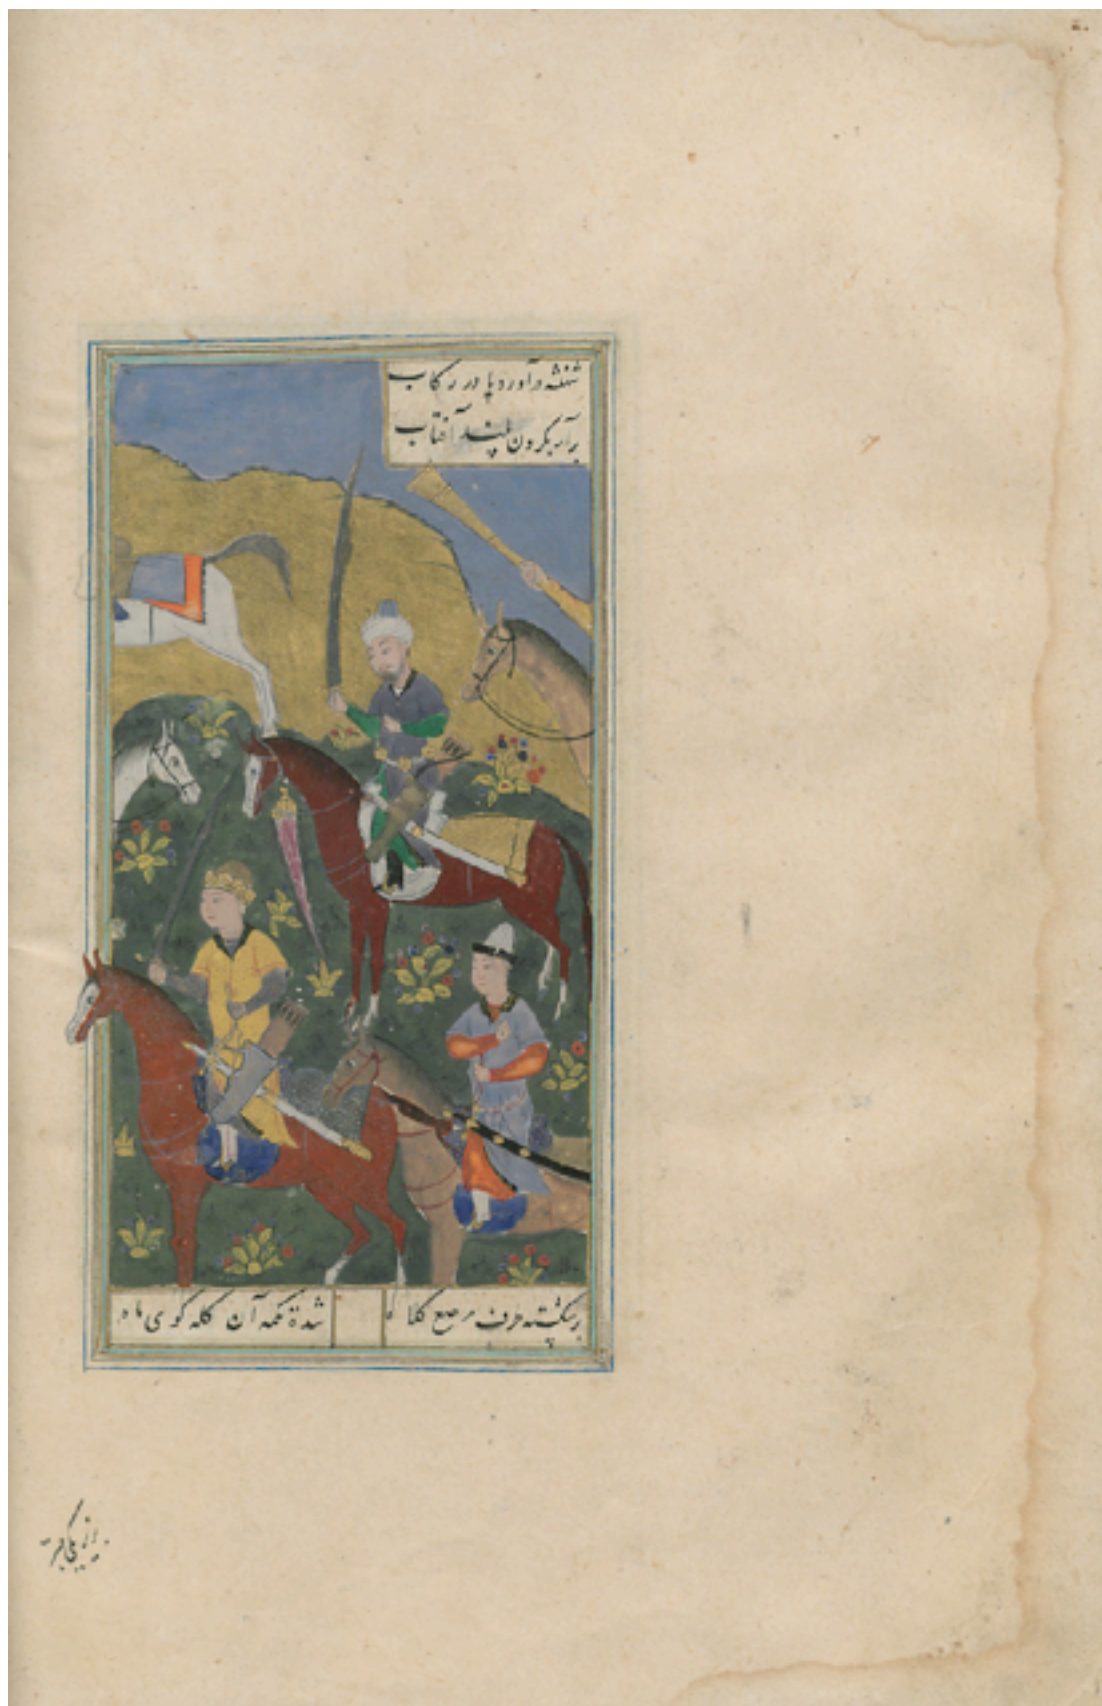 شهنشه درآورد پا در رکاب
برآمد بگردون بلند آفتاب
برشکسته طرف مرصع کلاه
شده تکمه آن کله گوی ماه